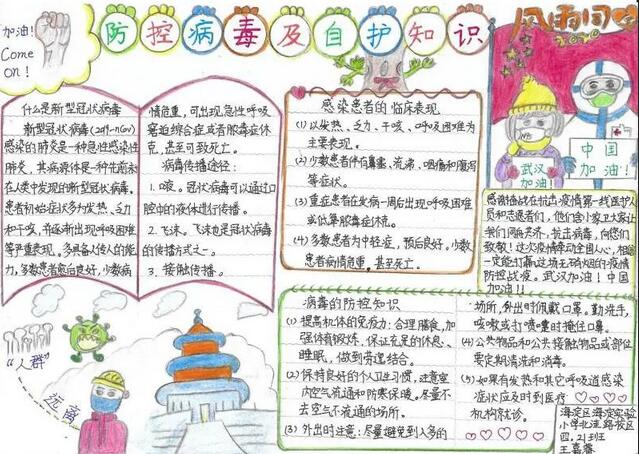 加油!
Come
on!
防控病毒及自护知识
风雨同
2020
什么是新型冠状病毒
新型冠状病毒(2019-nCoV)
感染的肺炎是一种急性感染性
肺炎,其病原体是一种先前未
在人类中发现的新型冠状病毒。
患者初始症状多为发热、乏力
和干咳,并逐渐出现呼吸困难
等严重表现。多具备人传人的能
力,多数患者愈后良好,少数病
情危重,可出现急性呼吸
窘迫综合症或者脓毒症休
克,甚至可致死亡。
病毒传播途径:
1.咳。冠状病毒可以通过口
腔中的液体进行传播。
2.飞沫。飞沫也是冠状病毒
的传播方式之一。
3.接触传播。
感染患者的临床表现
(1)以发热、乏力、干咳、呼吸困难为
主要表现。
(2)少数患者伴有鼻塞、流涕、咽痛和腹泻
等症状。
(3)重症患者在发病一周后出现呼吸困难
或低氧脓毒症休克。
(4)多数患者为中轻症,预后良好。少数
患者病情危重,甚至死亡。
武汉
加油!
中国
加油!
感谢奋战在抗击疫情第一线医护人
员和志愿者们,他们舍小家卫大家让
我们同舟共济,抗击病毒,向您们
致敬!这次疫情牵动全国人心,相信
一定能打赢这场无硝烟的疫情
防控战役。武汉加油!中国
加油!!
病毒的防控知识
(1)提高机体的免疫力:合理膳食,加
强体育锻炼,保证充足的休息、
睡眠,做到劳逸结合。
(2)保持良好的个人卫生习惯,注意室
内空气流通和防寒保暖。尽量不
去空气不流通的场所。
(3)外出时注意:尽量避免到人多的
场所,外出时佩戴口罩。勤洗手,
咳嗽或打喷嚏时掩住口鼻。
(4)公共物品和公共接触物品或部位
要定期清洗和消毒。
(5)如果有发热和其它呼吸道感染
症状应及时到医疗
机构就诊。
“人群”
远离
海淀区海淀实验
小学北洼路校区
四.21班
王嘉睿